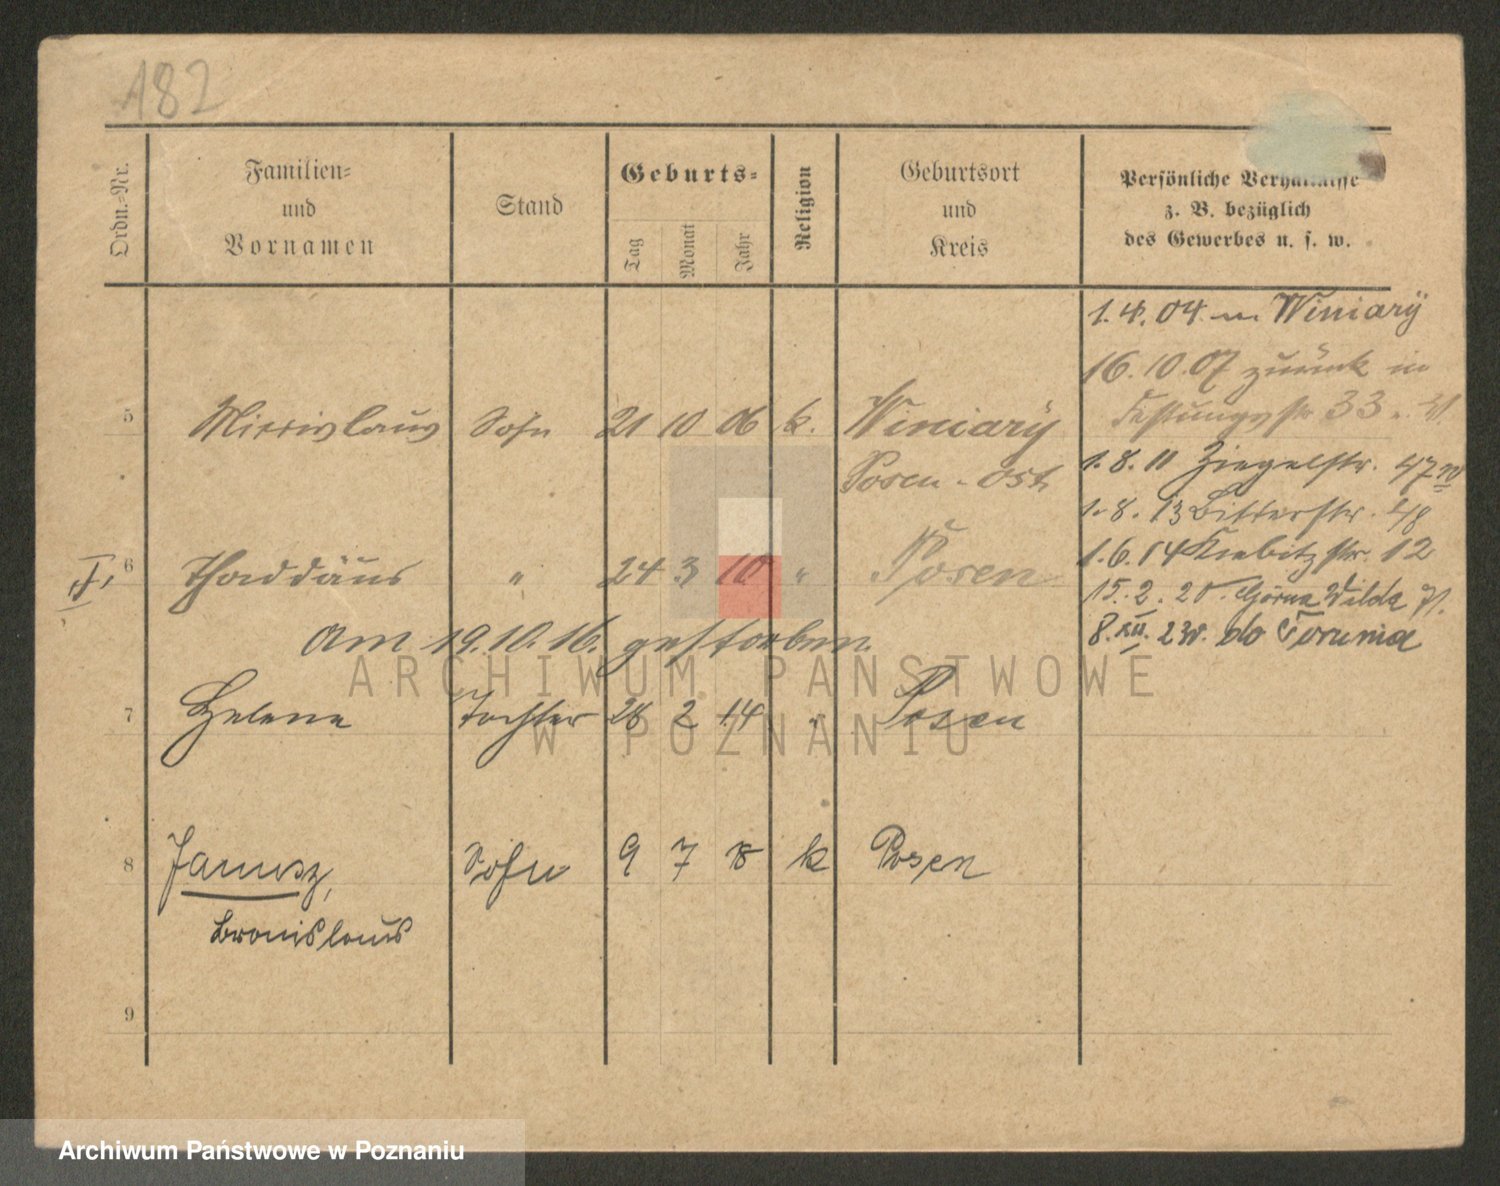 182
Ordn.-Nr.
Familien-
und
Vornamen
Stand
Geburts-
Tag
Monat
Jahr
Religion
Geburtsort
und
Kreis
Persönliche Verhältnisse
z. B. bezüglich
des Gewerbes u. s. w.
1. 4. 04. Winiary
16. 10. 07 zurück in
Festungsstr 33
5 Sohn 21 10 06 k. Winiary
Posen-Ost
1. 8. 11 Ziegelstr. 47
1. 8. 13 Bitterstr. 48
1. 6. 14 Kiebitzstr. 12
6 Thaddäus " 24 3 10 " Posen
15. 2. 20. Górna Wilda
8. XII. 23. do Torunia
am 19. 10. 16. gestorben.
7 Helene Tochter 28 2 14 " Posen
8 Janusz, Sohn 9 7 18 k Posen
Bronislaus
9
ARCHIWUM PAŃSTWOWE
W POZNANIU
Archiwum Państwowe w Poznaniu